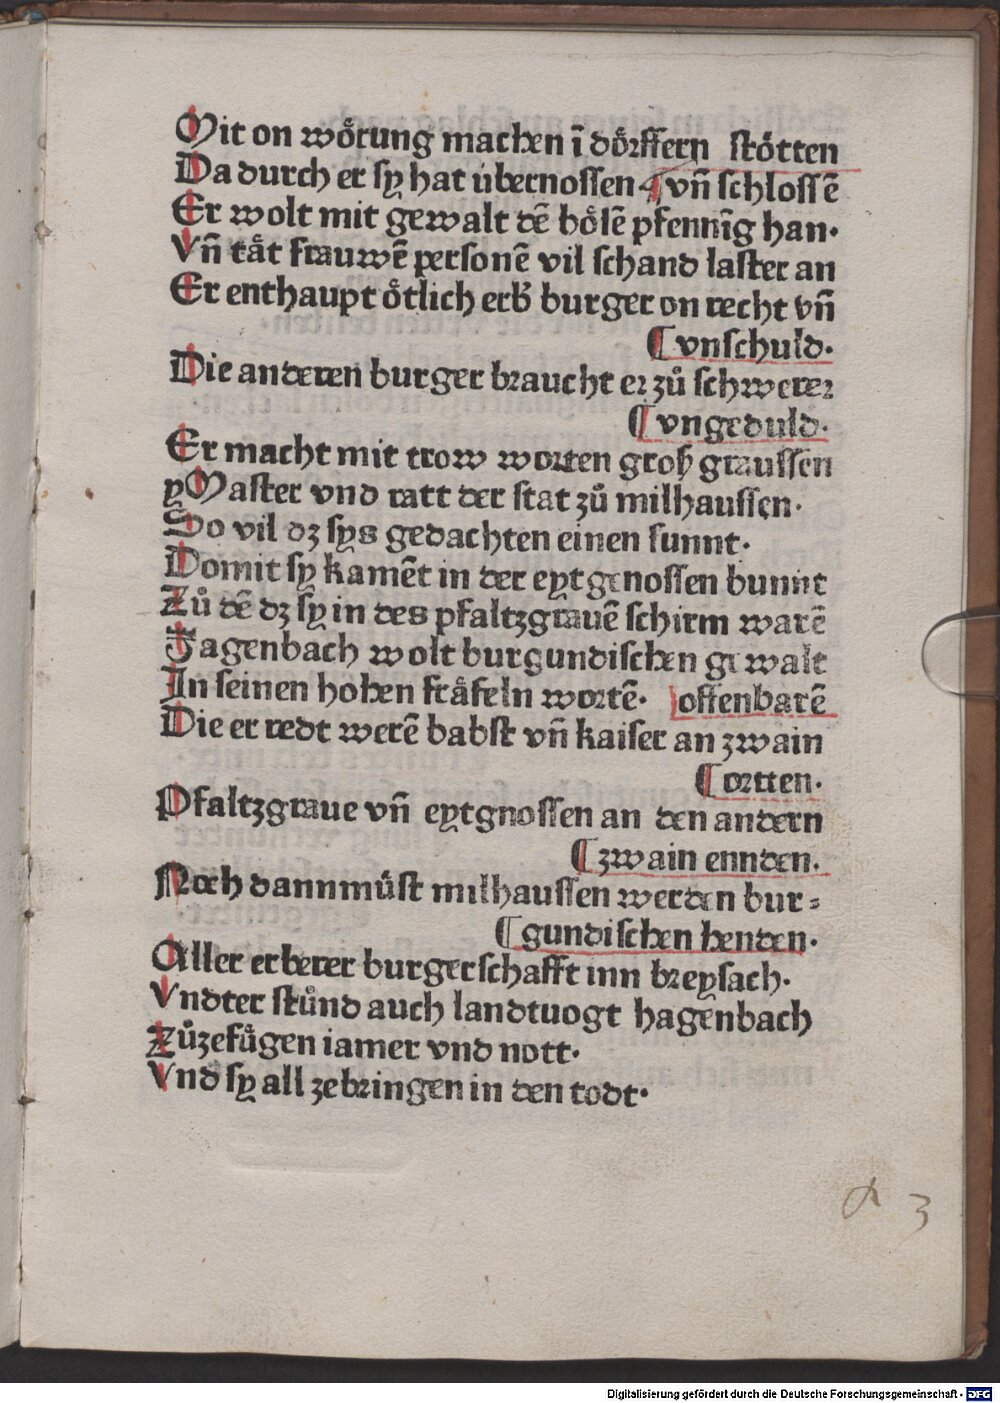 Mit on wörung machen ī dörffern stötten
Da durch er sy hat übernossen ¶ vn̄ schlossē
Er wolt mit gewalt dē bösē pfennīg han·
Vn̄ tät frauwē personē vil schand laster an
Er enthaupt ötlich erb̉ burger on recht vn̄
¶ vnschuld·
Die anderen burger braucht er zů schwerer
¶ vngeduld·
Er macht mit trow worten groß graussen
yMaster vnd ratt der stat zů milhaussen·
So vil dz sys gedachten einen funnt·
Domit sy kamēt in der eytgenossen bunnt
Zů dē dz sy in des pfaltzgrauē schirm warē
Hagenbach wolt burgundischen gewalt
In seinen hohen fräfeln wortē· offenbarē
Die er redt werē babst vn̄ kaiser an zwain
¶ ortten·
Pfaltzgraue vn̄ eytgnossen an den andern
¶ zwain ennden.
Noch dann müst milhaussen werden bur⸗
¶ gundischen henden·
Aller erberer burgerschafft inn breysach·
Vndter stůnd auch landtuogt hagenbach
Zůzefügen iamer vnd nott·
Vnd sy all zebringen in den todt·
3
Digitalisierung gefördert durch die Deutsche Forschungsgemeinschaft · DFG